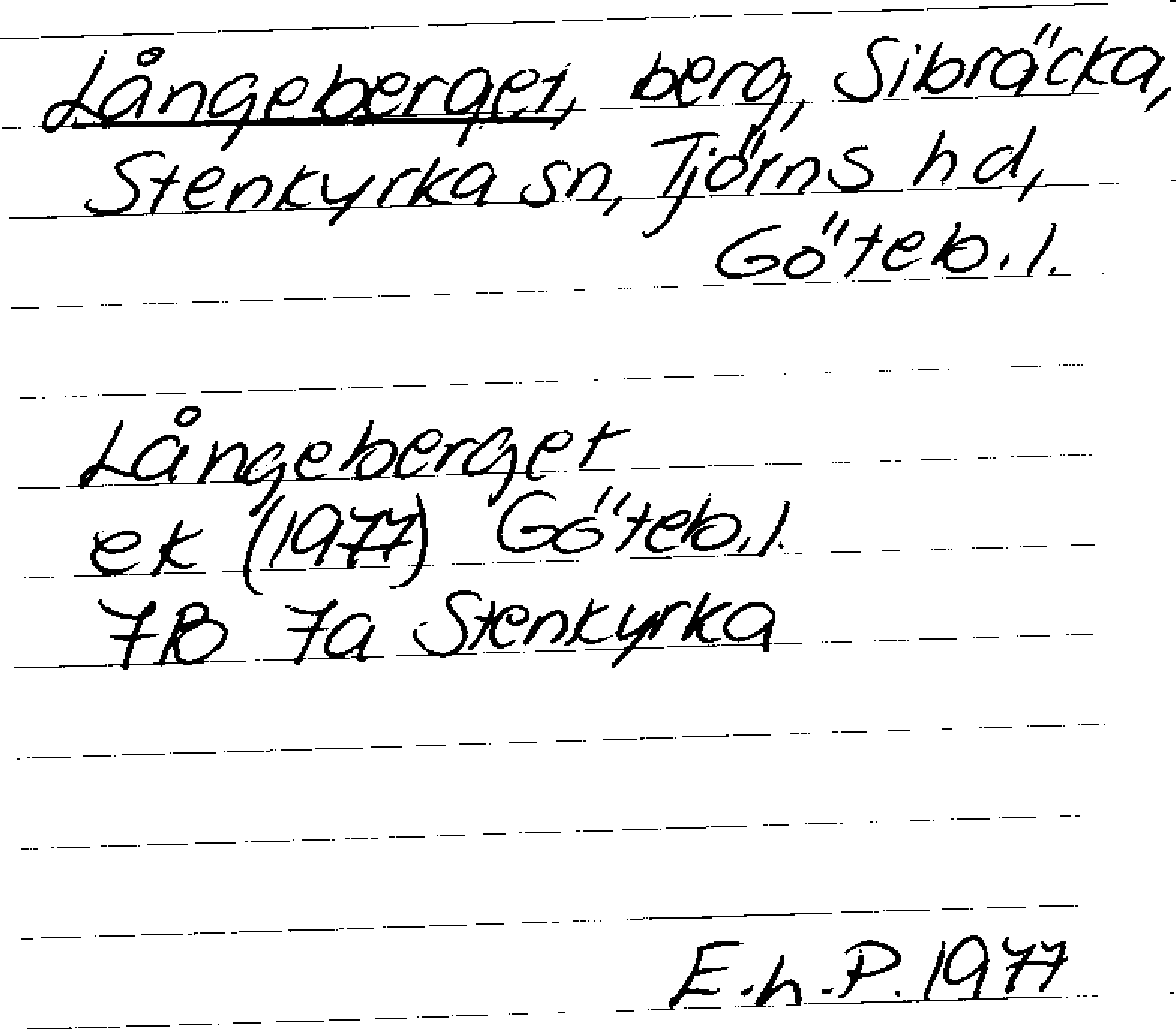 Långeberget, berg, Sibräcka,
Stenkyrka sn, Tjörns hd,
Göteb. l.
Långeberget
ek (1977) Göteb. l.
7B 7a Stenkyrka
E.h.P. 1977